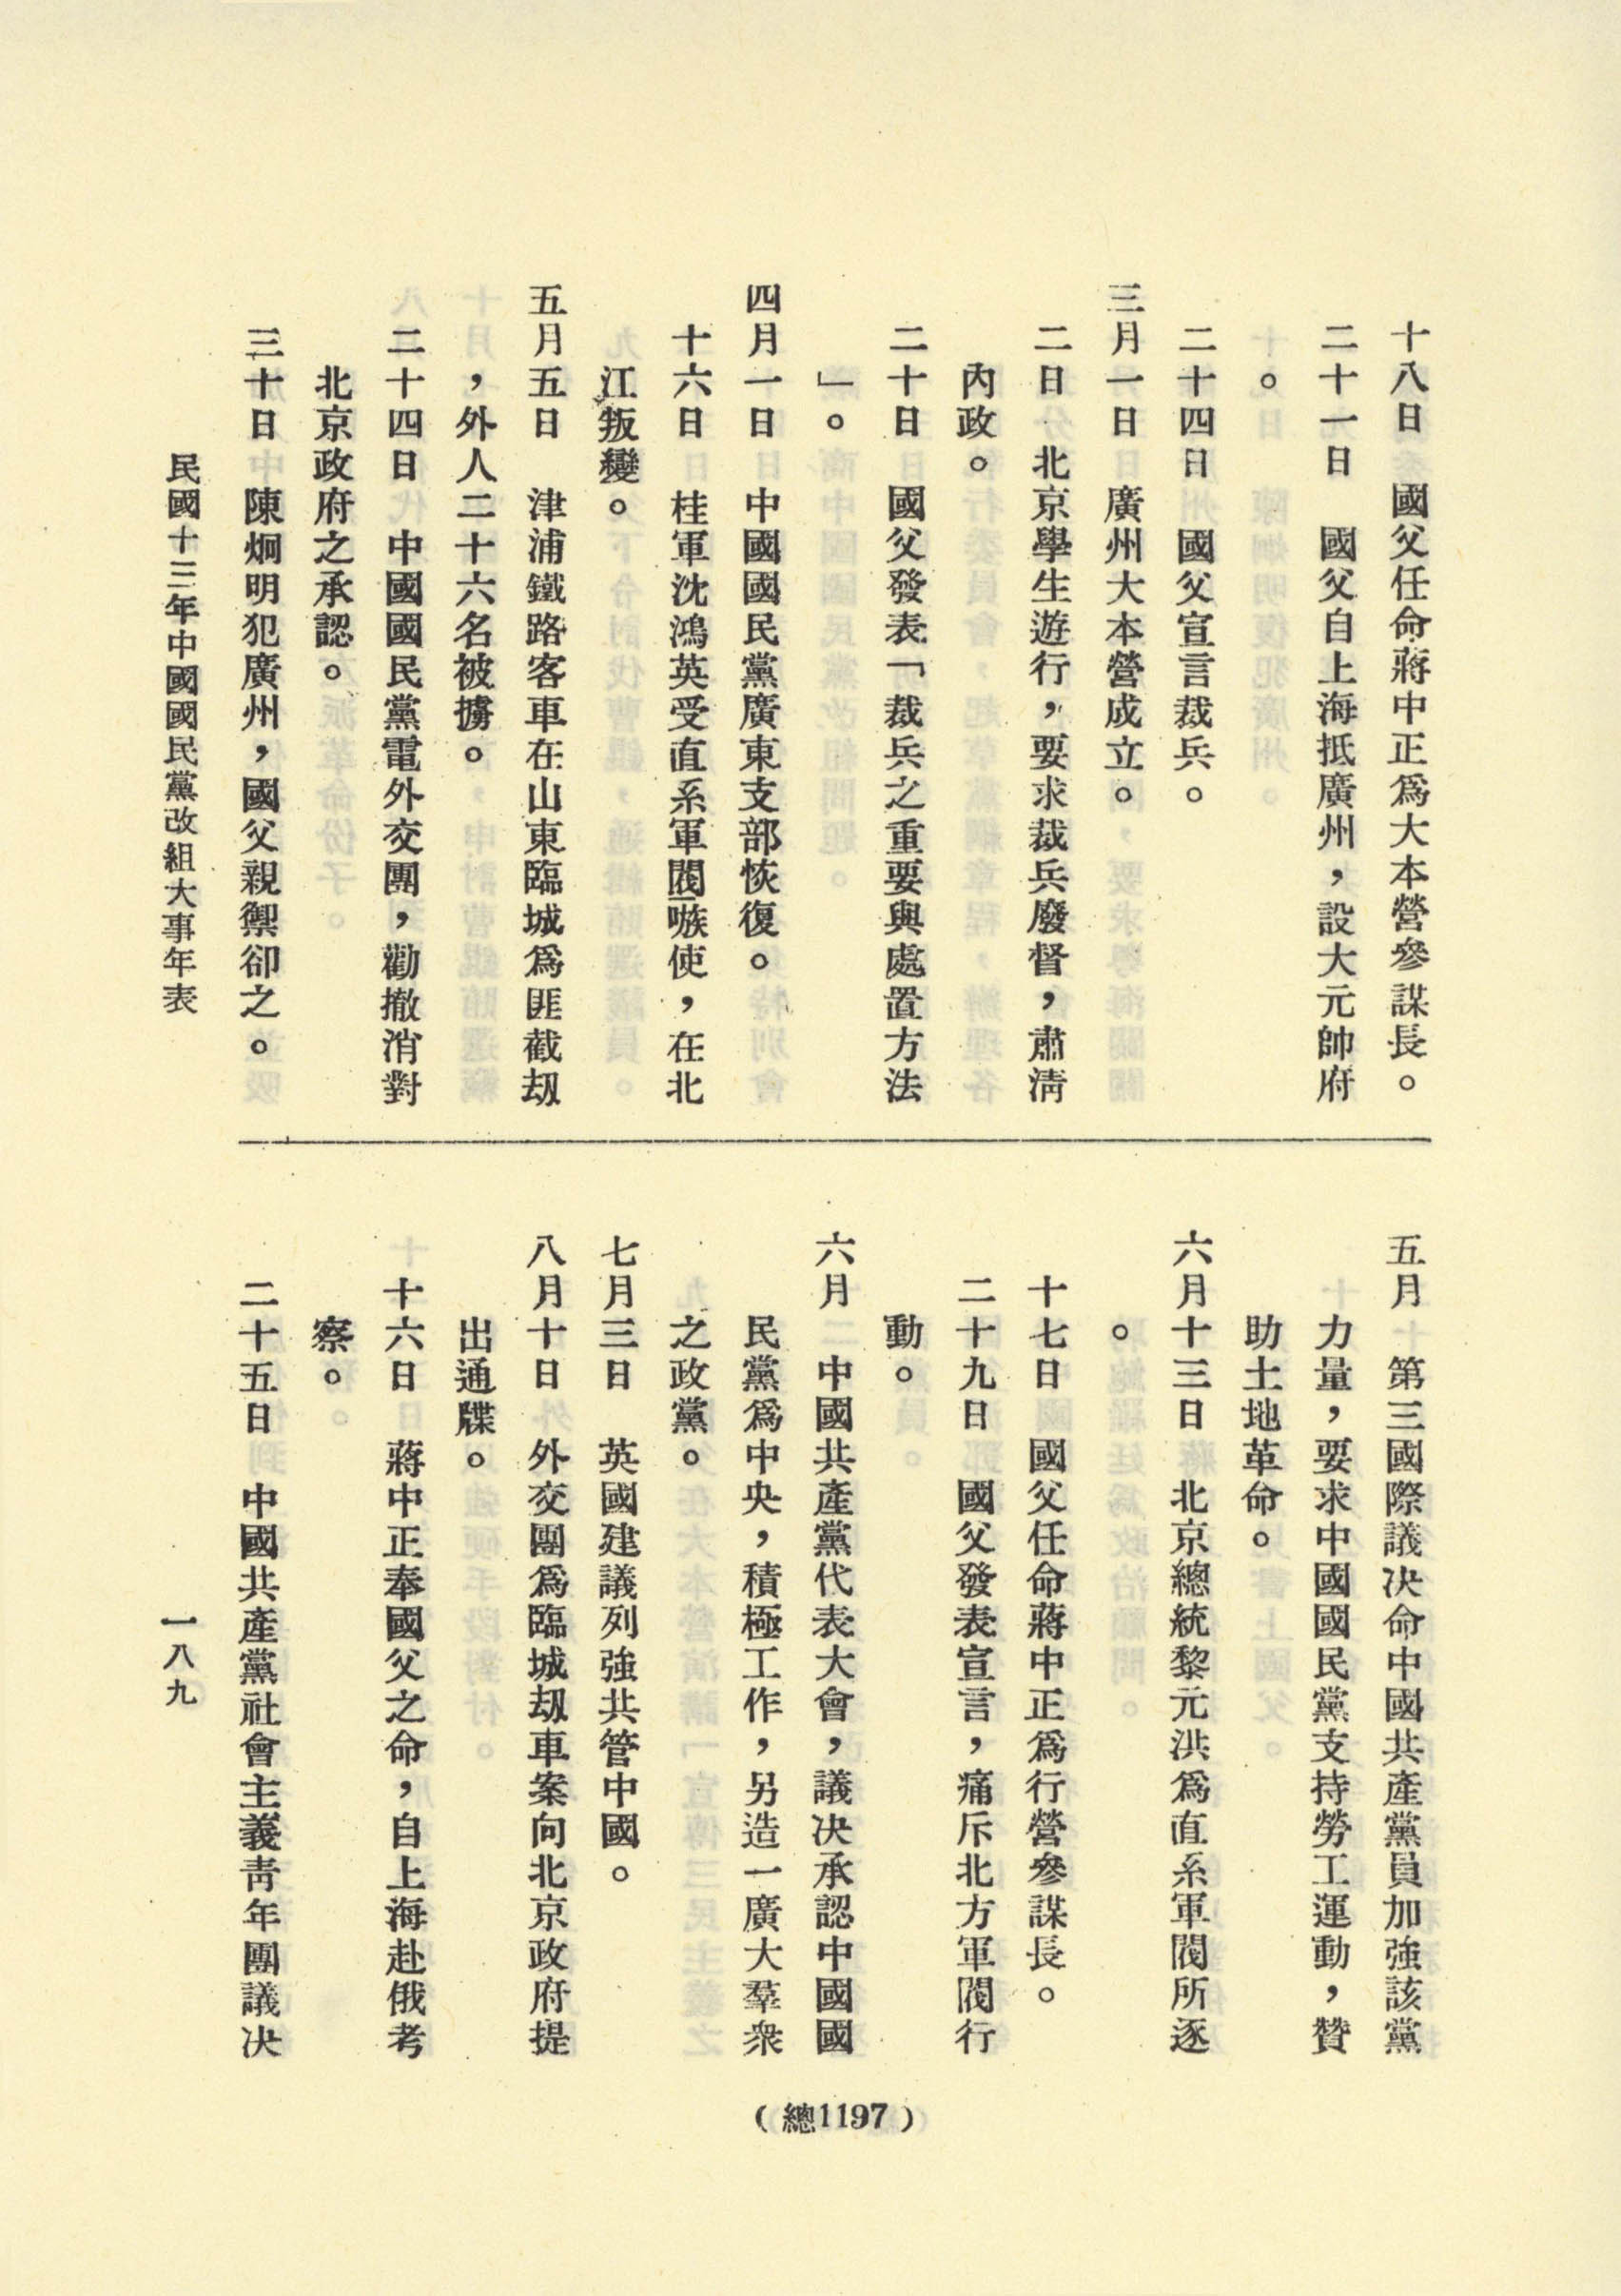 十八日　國父任命蔣中正爲大本營參謀長。
二十一日　國父自上海抵廣州，設大元帥府
。
二十四日　國父宣言裁兵。
三月一日　廣州大本營成立。
二日　北京學生遊行，要求裁兵廢督，肅淸
內政。
二十日　國父發表「裁兵之重要與處置方法
」。
四月一日　中國國民黨廣東支部恢復。
十六日　桂軍沈鴻英受直系軍閥嗾使，在北
江叛變。
五月五日　津浦鐵路客車在山東臨城爲匪截刼
，外人二十六名被擄。
二十四日　中國國民黨電外交團，勸撤消對
北京政府之承認。
三十日　陳炯明犯廣州，國父親禦卻之。
五月　第三國際議決命中國共產黨員加強該黨
力量，要求中國國民黨支持勞工運動，贊
助土地革命。
六月十三日　北京總統黎元洪爲直系軍閥所逐
。
十七日　國父任命蔣中正爲行營參謀長。
二十九日　國父發表宣言，痛斥北方軍閥行
動。
六月　中國共產黨代表大會，議決承認中國國
民黨爲中央，積極工作，另造一廣大羣衆
之政黨。
七月三日　英國建議列強共管中國。
八月十日　外交團爲臨城刼車案向北京政府提
出通牒。
十六日　蔣中正奉國父之命，自上海赴俄考
察。
二十五日　中國共產黨社會主義靑年團議決
民國十三年中國國民黨改組大事年表
一八九
（總1197）